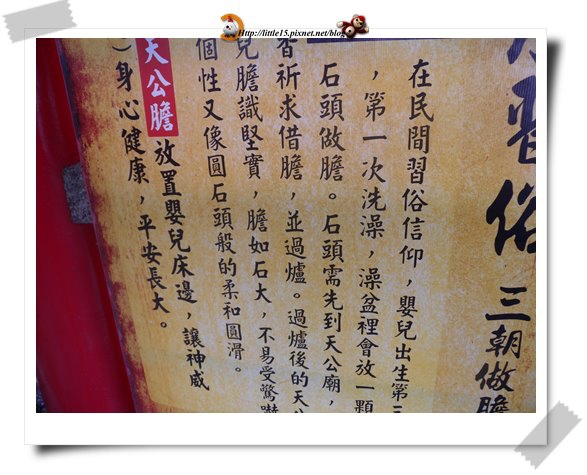 Http://little15.pixnet.net/blog
習俗
三朝做膽
在民間習俗信仰，嬰兒出生第三
，第一次洗澡，澡盆裡會放一顆
石頭做膽。石頭需先到天公廟，
香祈求借膽，並過爐。過爐後的天公
兒膽識堅實，膽如石大，不易受驚嚇
個性又像圓石頭般的柔和圓滑。
天公膽放置嬰兒床邊，讓神威
）身心健康，平安長大。